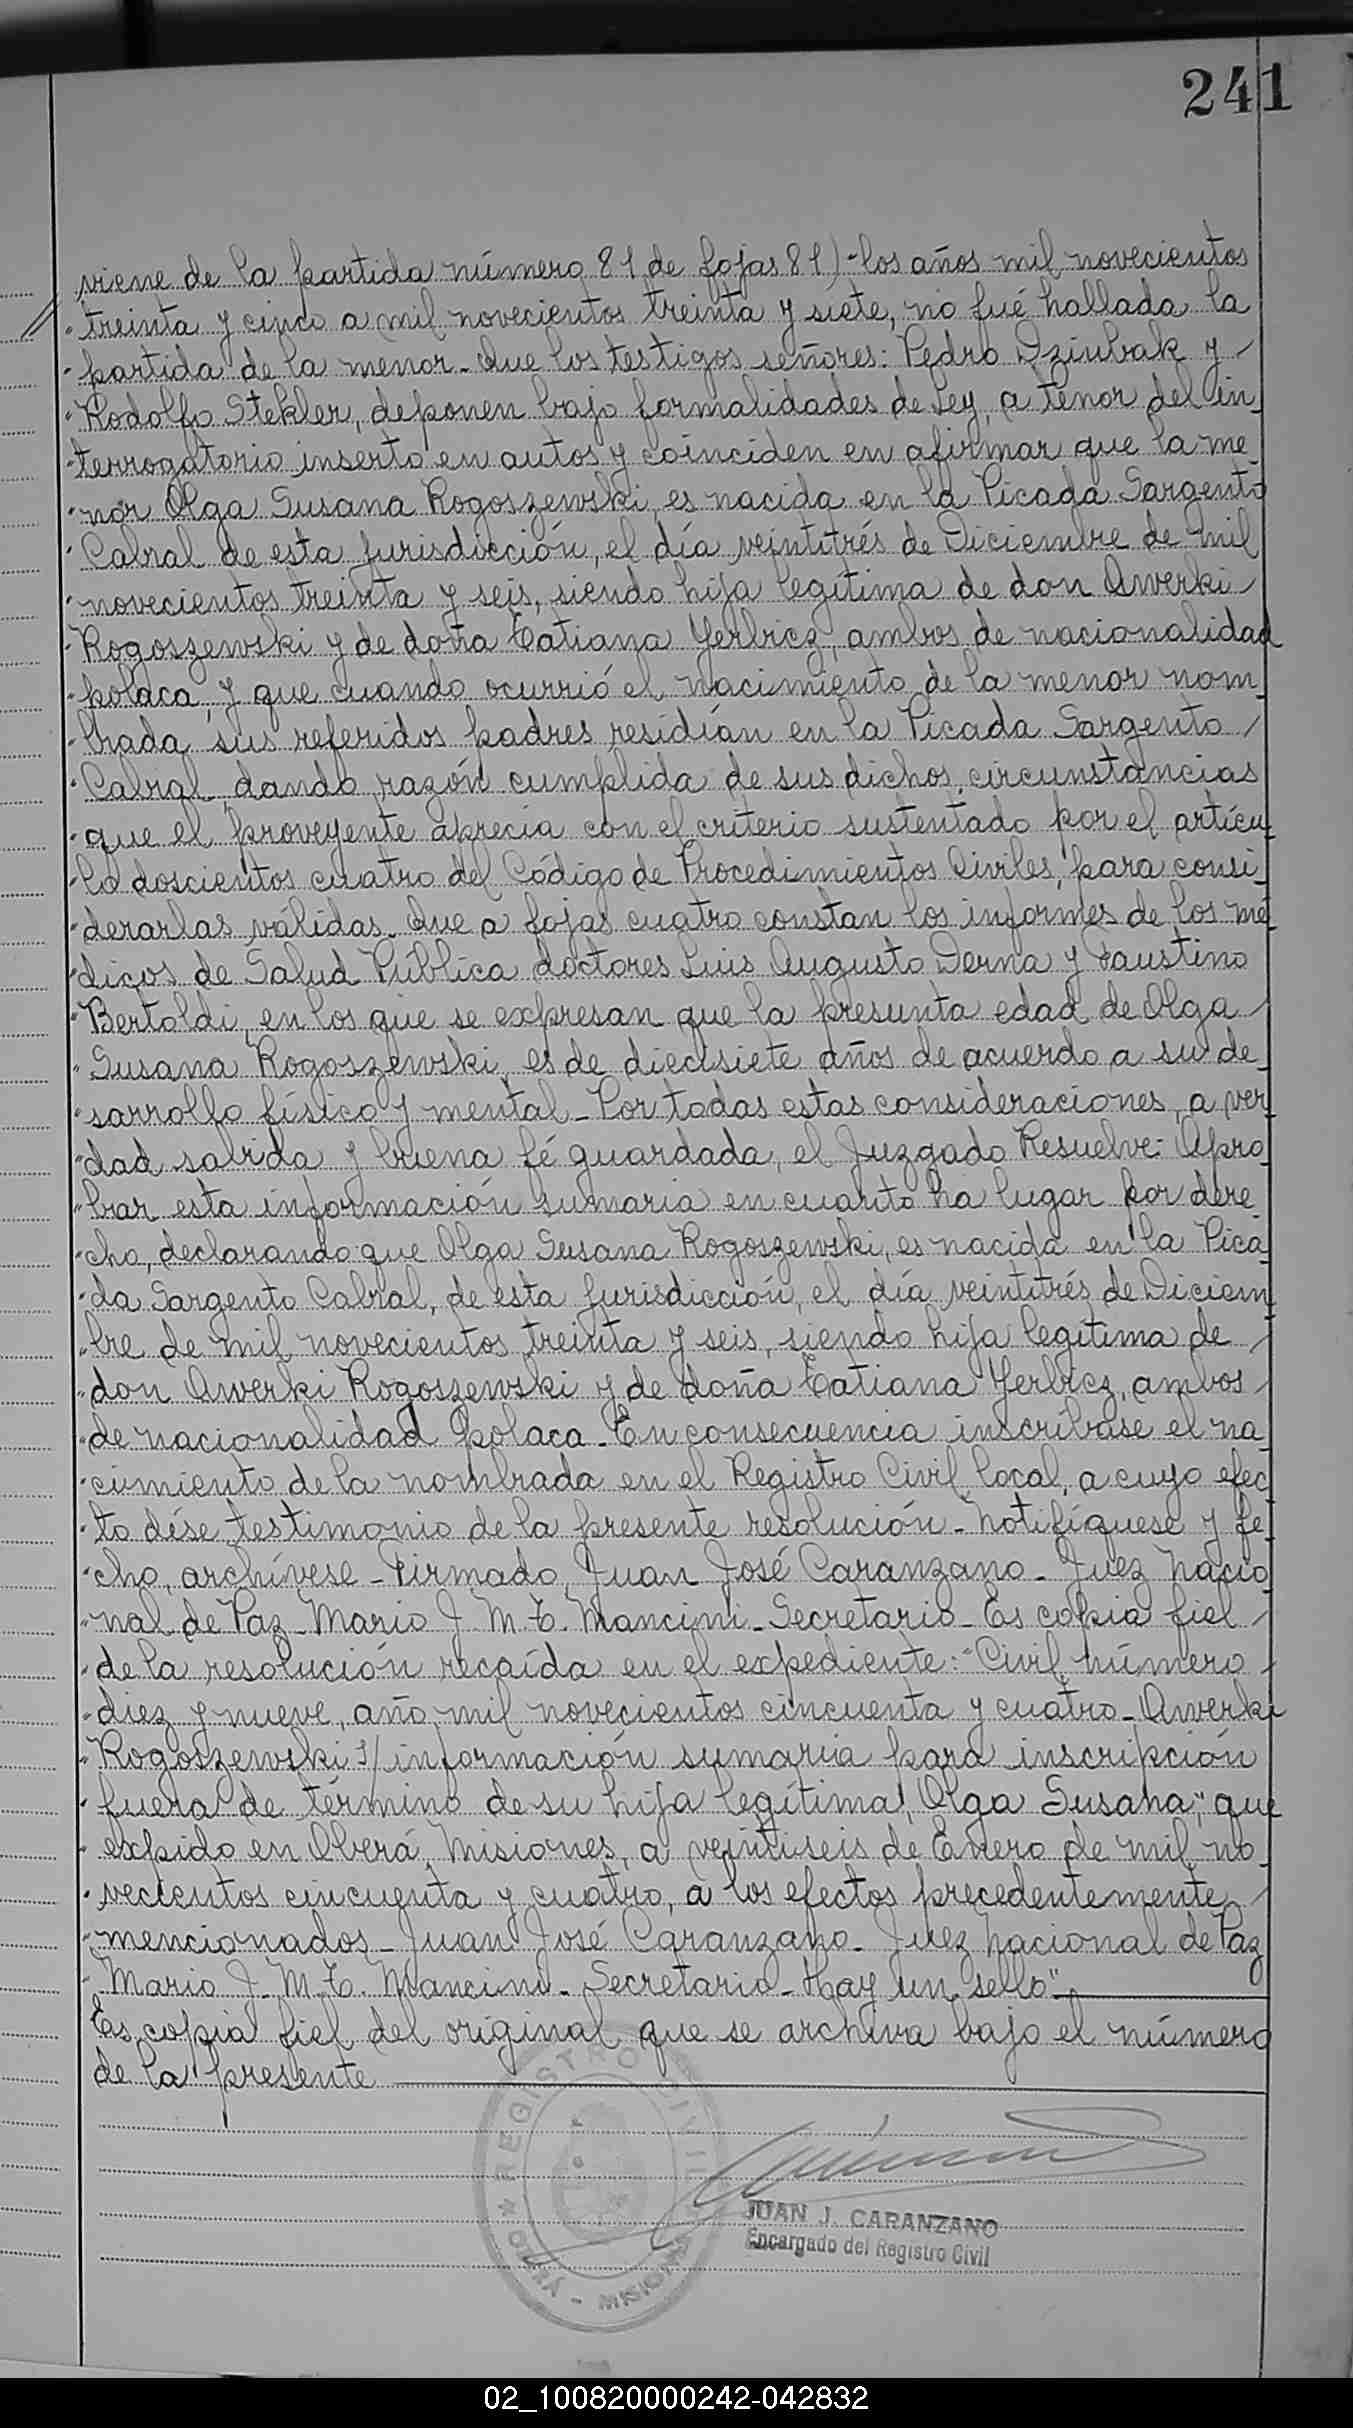 241
viene de la partida número 81 de fojas 81)-los años mil novecientos
"treinta y cinco a mil novecientos treinta y siete, no fué hallada la
"partida de la menor-Que los testigos señores: Pedro Dziubak y/
"Rodolfo Stekler, deponen bajo formalidades de Ley, a tenor del in_
"terrogatorio inserto en autos y coinciden en afirmar que la me_
"nor Olga Susana Rogoszewski, es nacida en la Picada Sargento
"Cabral de esta jurisdicción, el día veintitrés de Diciembre de mil
"novecientos treinta y seis, siendo hija legítima de don Awerki/
"Rogoszewski y de doña Tatiana Yerbicz, ambos de nacionalidad
"polaca, y que cuando ocurrió el nacimiento de la menor nom_
"brada sus referidos padres residían en la Picada Sargento/
"Cabral, dando razón cumplida de sus dichos, circunstancias
"que el proveyente aprecia con el criterio sustentado por el artícu_
"lo doscientos cuatro del Código de Procedimientos Civiles, para consi_
"derarlas válidas. Que a fojas cuatro constan los informes de los mé_
"dicos de Salud Pública doctores Luis Augusto Derna y Faustino
"Bertoldi, en los que se expresan que la presunta edad de Olga/
"Susana Rogoszewski, es de diecisiete años de acuerdo a su de_
"sarrollo físico y mental-Por todas estas consideraciones, a ver_
"dad sabida y buena fé guardada, el Juzgado Resuelve: Apro_
"bar esta información sumaria en cuanto ha lugar por dere_
"cho, declarando que Olga Susana Rogoszewski, es nacida en la Pica_
"da Sargento Cabral, de esta jurisdicción, el día veintitrés de Diciem_
"bre de mil novecientos treinta y seis, siendo hija legítima de/
"don Awerki Rogoszewski y de doña Tatiana Yerbicz, ambos/
"de nacionalidad polaca-En consecuencia inscríbase el na_
"cimiento de la nombrada en el Registro Civil local, a cuyo efec_
"to dése testimonio de la presente resolución-Notifíquese y fe_
"cho, archívese-Firmado, Juan José Caranzano-Juez Nacio_
"nal de Paz-Mario J. M. T. Mancini-Secretario-Es copia fiel/
"de la resolución recaída en el expediente: "Civil número/
"diez y nueve, año mil novecientos cincuenta y cuatro-Awerki
"Rogoszewski s/información sumaria para inscripción
"fuera de término de su hija legítima, Olga Susana", que
"expido en Oberá, Misiones, a veintiseis de Enero de mil no_
"vecientos cincuenta y cuatro, a los efectos precedentemente/
"mencionados-Juan José Caranzano-Juez Nacional de Paz
"Mario J. M. T. Mancini-Secretario-Hay un sello"
Es copia fiel del original que se archiva bajo el número
de la presente
REGISTRO CIVIL
MISIONES
JUAN J. CARANZANO
Encargado del Registro Civil
02_100820000242-042832